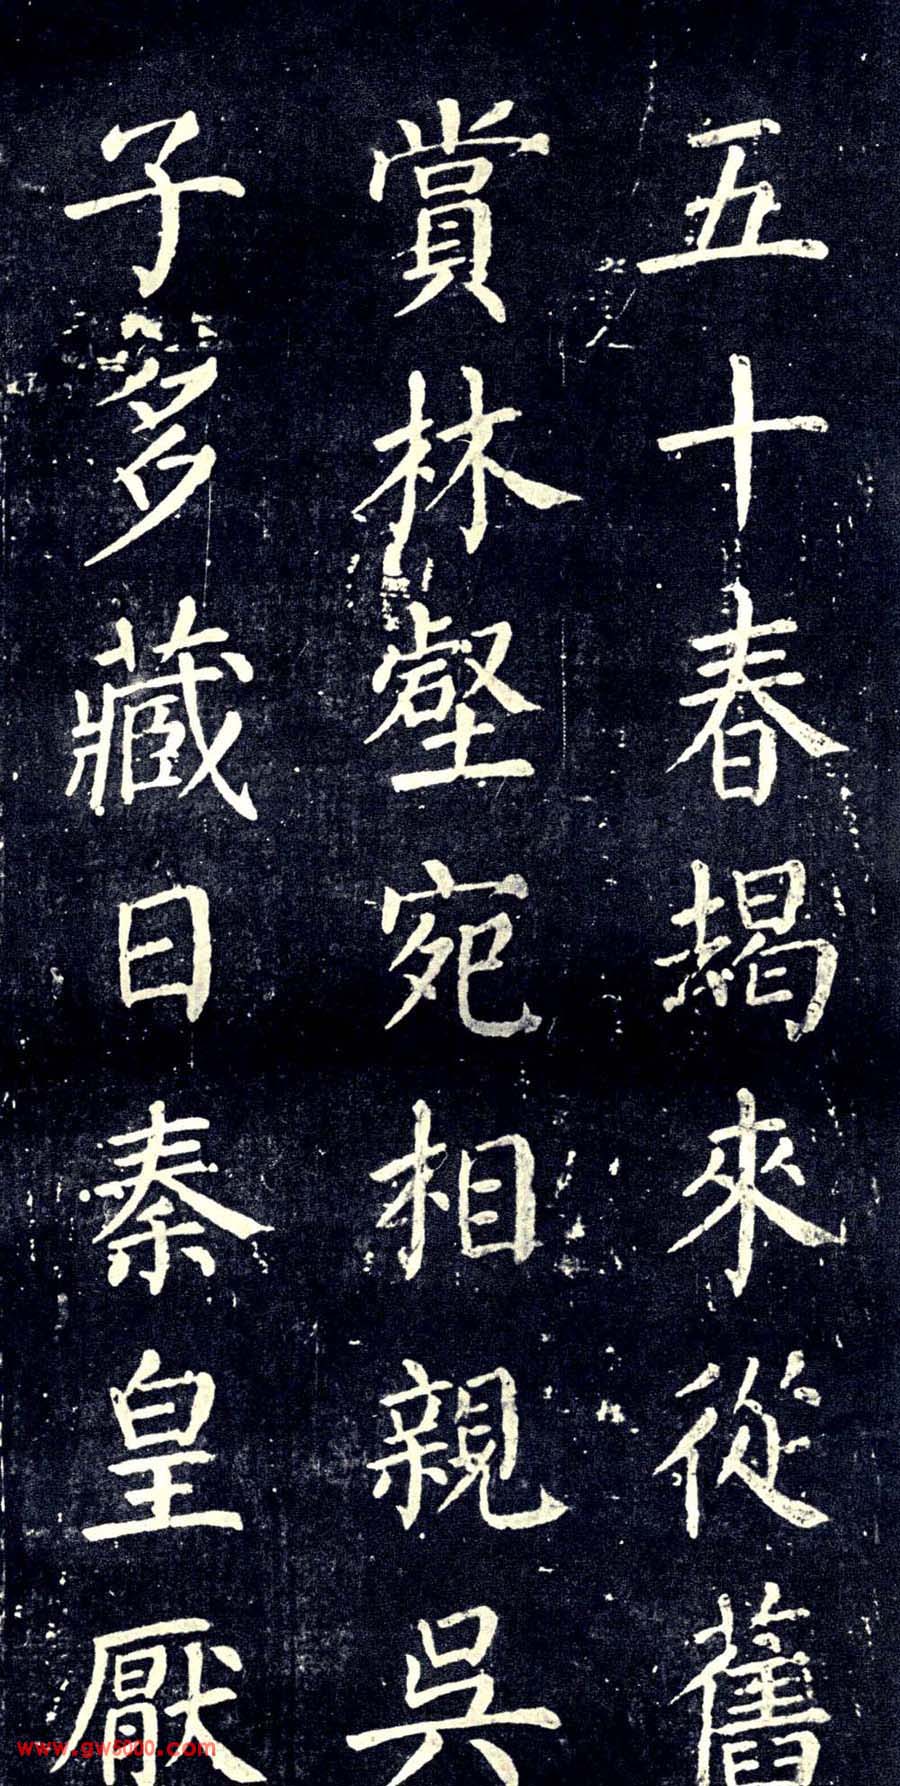 五十春揭來從舊
賞林壑宛相親吳
子多藏日秦皇厭
www.gw5000.com